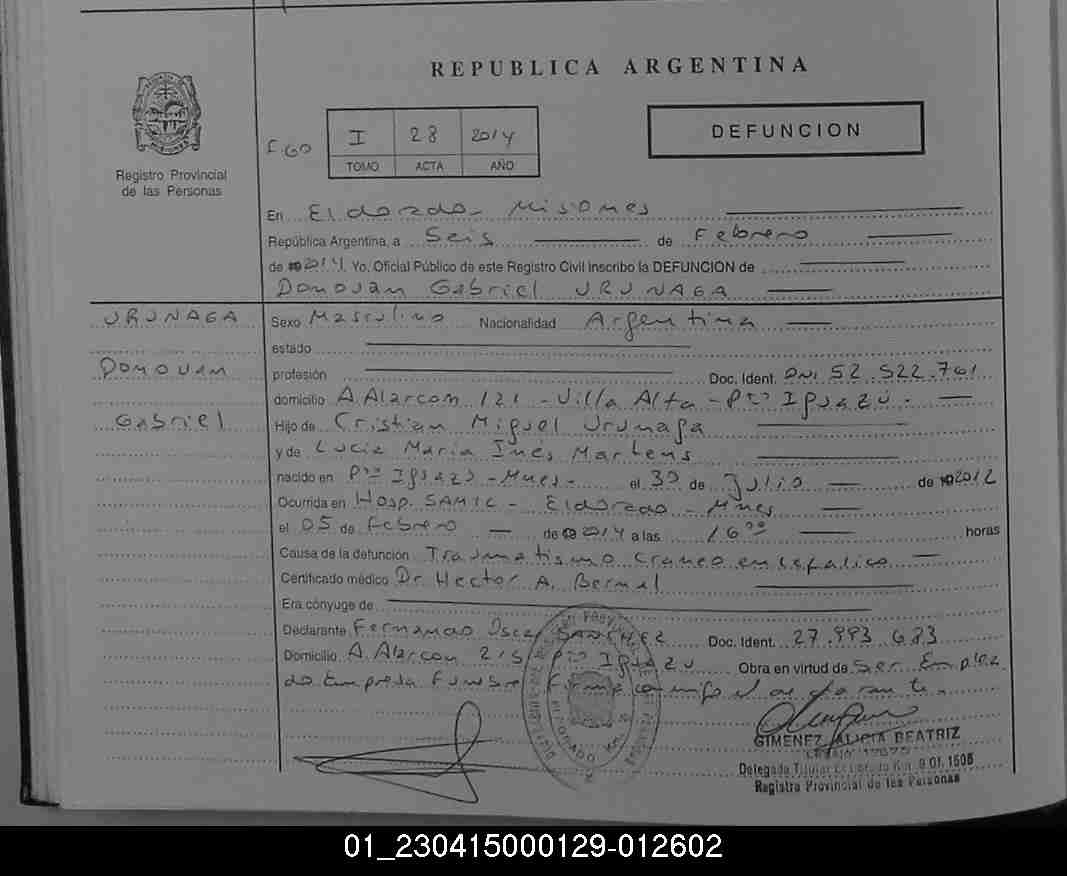 REPUBLICA ARGENTINA
DEFUNCION
Registro Provincial
de las Personas
F 60
I 28 2014
TOMO ACTA AÑO
En Eldorado - Misiones
República Argentina, a Seis de Febrero
de 2014. Yo, Oficial Público de este Registro Civil inscribo la DEFUNCION de
Donovan Gabriel URUNAGA
URUNAGA
Donovan
Gabriel
Sexo Masculino Nacionalidad Argentina
estado
profesión Doc. Ident. DNI 52.522.761
domicilio A. Alarcon 121 - Villa Alta - Pto Iguazú -
Hijo de Cristian Miguel Urunaga
y de Lucia Maria Inés Martens
nacido en Pto Iguazú - Mnes - el 30 de Julio de 2012
Ocurrida en Hosp. SAMIC - Eldorado - Mnes
el 05 de Febrero de 2014 a las 16 00 horas
Causa de la defunción Traumatismo craneo encefalico
Certificado médico Dr. Hector A. Bernal
Era cónyuge de
Declarante Fernando Oscar SANCHEZ Doc. Ident. 27.993.683
Domicilio A. Alarcon 215 Pto IGUAZU Obra en virtud de Ser Emplea
do Empresa Funebre Firma conmigo el declarante.
GIMENEZ ALICIA BEATRIZ
Delegada Titular Eldorado Km. 9 Of. 1508
Registro Provincial de las Personas
01_230415000129-012602